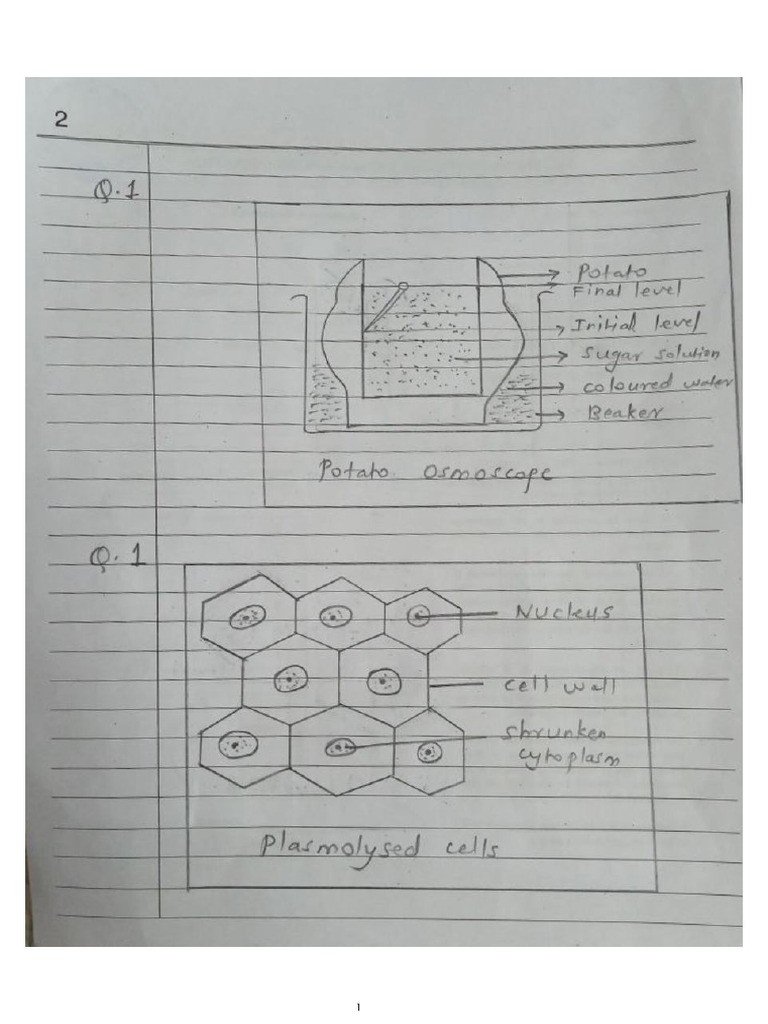 2
Q.1
Potato
Final level
Initial level
Sugar solution
coloured water
Beaker
Potato osmoscope
Q.1
Nucleus
cell wall
shrunken
cytoplasm
Plasmolysed cells
1